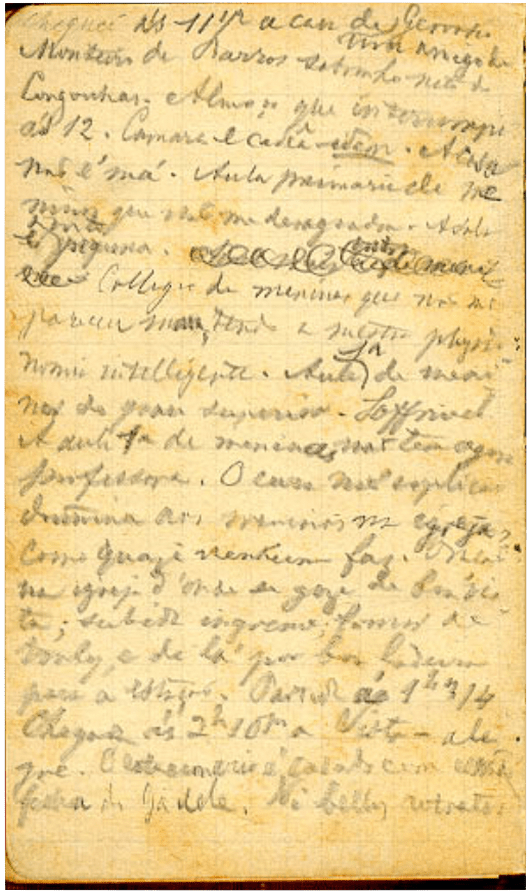 Cheguei ás 11 a casa de Geronimo
Monteiro de Barros sobrinho-neto de
Congonhas. Almoço que interrompi
ás 12. Camara e cadêa idem. A casa
não é má. Aula primaria de me
ninos que não me desagradou. A sala
é pequena.
Collegio de meninas que não me
pareceu mau, tendo a mestra physio
nomia intelligente. Aula de meni
nos do grau superior. Soffrivel
A aula de meninas não tem agora
professora. O cura não explica
doutrina aos meninos na igreja,
como quasi nenhum faz.
na igreja d'onde se goza de boa vis
ta; subida ingreme, fomos de
trolly, e de lá por boa ladeira
para a estação. Partida ás 1h 1/4
Chegada ás 2h 10m a Vista-ale
gre. O estacionario é casado com
de Gádde. Vi bellos retratos